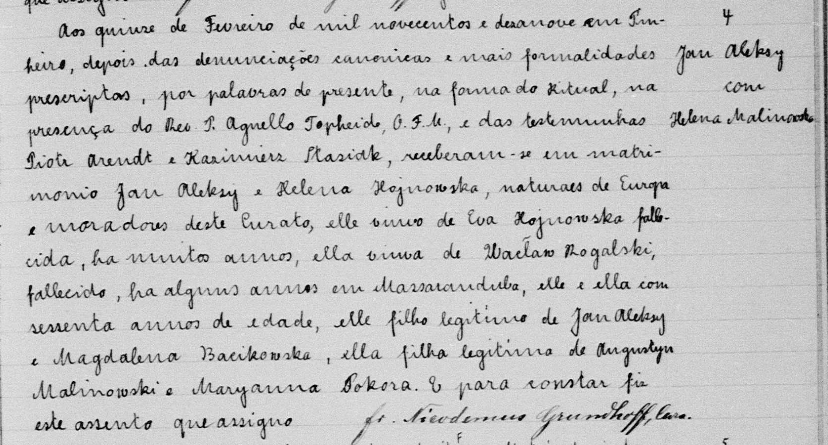 Aos quinze de Fevreiro de mil novecentos e dezanove em Pin-
heiro, depois das denunciações canonicas e mais formalidades
prescriptas, por palavras do presente, na forma do Ritual, na
presença do Rev. P. Agnello Topheide, O.F.M., e das testemunhas
Piotr Arendt e Kazimierz Stasiak, receberam-se em matri-
monio Jan Aleksy e Helena Hojnowska, naturaes de Europa
e moradores deste Curato, elle viuvo de Eva Hojnowska falle-
cida, ha muitos annos, ella viuva de Wacław Rogalski,
fallecido, ha alguns annos em Massaranduba, elle e ella com
sessenta annos de edade, elle filho legitimo de Jan Aleksy
e Magdalena Bacikowska, ella filha legitima de Augustyn
Malinowski e Maryanna Pokora. E para constar fiz
este assento que assigno
fr. Nicodemus Grundhoff, Cura.
4
Jan Aleksy
com
Helena Malinowska